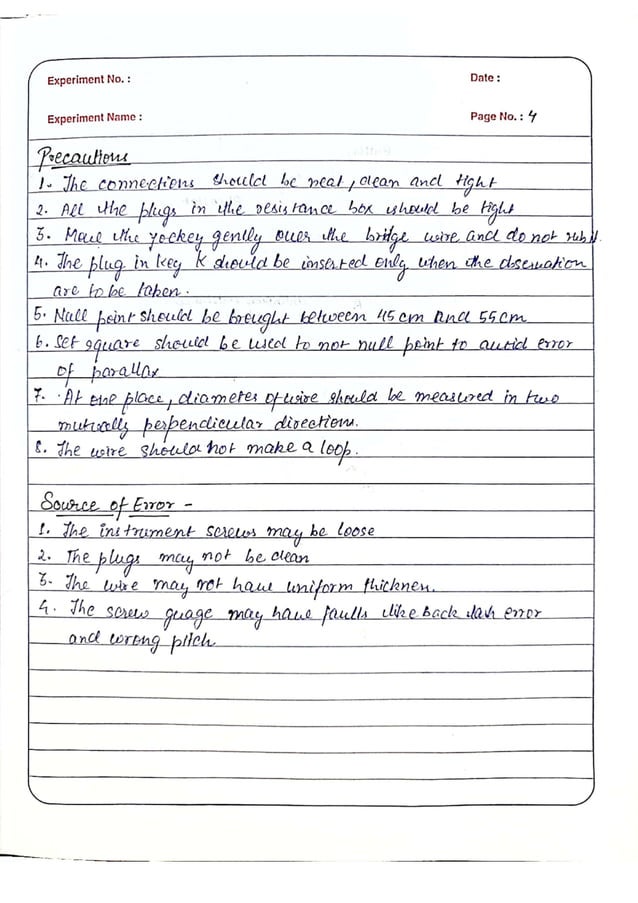 Experiment No. :
Date :
Experiment Name :
Page No. : 4
Precautions
1. The connections should be neat, clean and tight
2. All the plugs in the resistance box should be tight
3. Move the jockey gently over the bridge wire and do not rub it.
4. The plug in key K should be inserted only when the observation
are to be taken.
5. Null point should be brought between 45 cm and 55 cm
6. Set square should be used to not null point to avoid error
of parallax
7. At one place, diameter of wire should be measured in two
mutually perpendicular directions.
8. The wire should not make a loop.
Source of Error -
1. The instrument screws may be loose
2. The plugs may not be clean
3. The wire may not have uniform thicknen.
4. The screw guage may have faults like back lash error
and wrong pitch